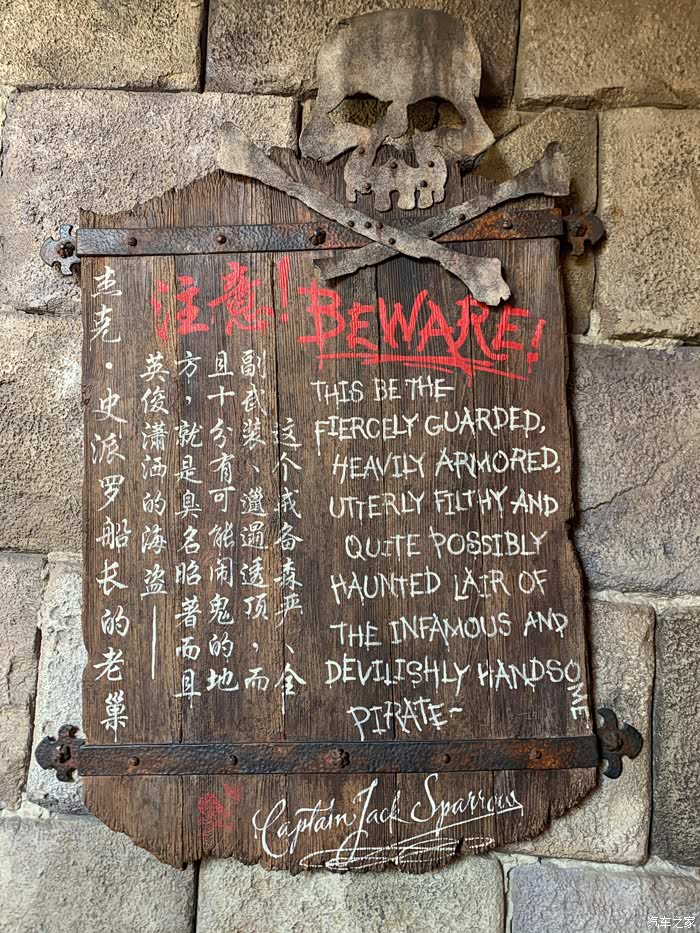 注意!
这个戒备森严、全
副武装、邋遢透顶，而
且十分有可能闹鬼的地
方，就是臭名昭著而且
英俊潇洒的海盗——
杰克·史派罗船长的老巢
BEWARE!
THIS BE THE
FIERCELY GUARDED,
HEAVILY ARMORED,
UTTERLY FILTHY AND
QUITE POSSIBLY
HAUNTED LAIR OF
THE INFAMOUS AND
DEVILISHLY HANDSOME
PIRATE~
Captain Jack Sparrow
汽车之家